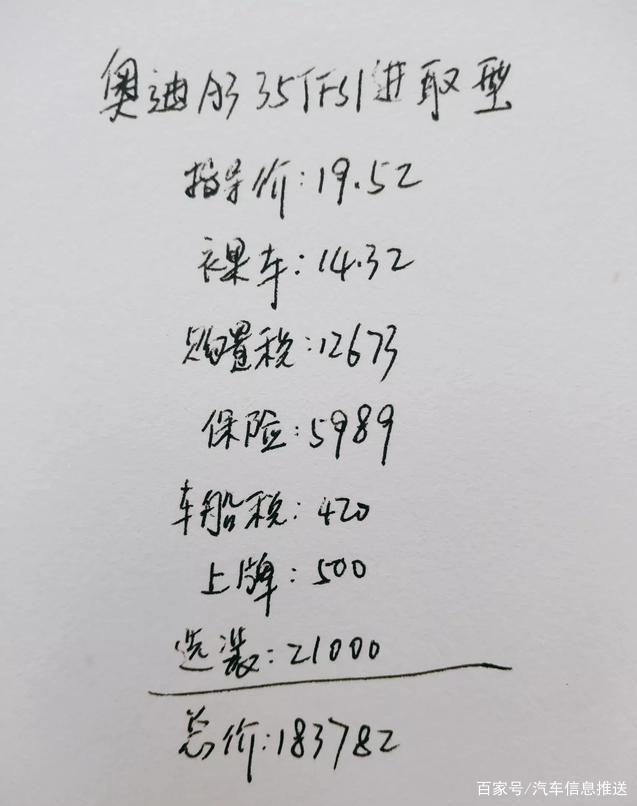 奥迪A3 35TFSI进取型
指导价:19.52
裸车:14.32
购置税:12673
保险:5989
车船税:420
上牌:500
选装:21000
总价:183782
百家号/汽车信息推送